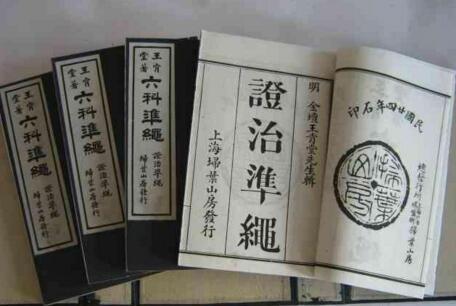 王肯堂著
六科準繩
證治準繩
掃葉山房發行
王肯堂著
六科準繩
證治準繩
掃葉山房發行
王肯堂著
六科準繩
證治準繩
掃葉山房發行
明 金壇王肯堂先生輯
證治準繩
上海埽葉山房發行
民國廿四年石印
掃葉山房